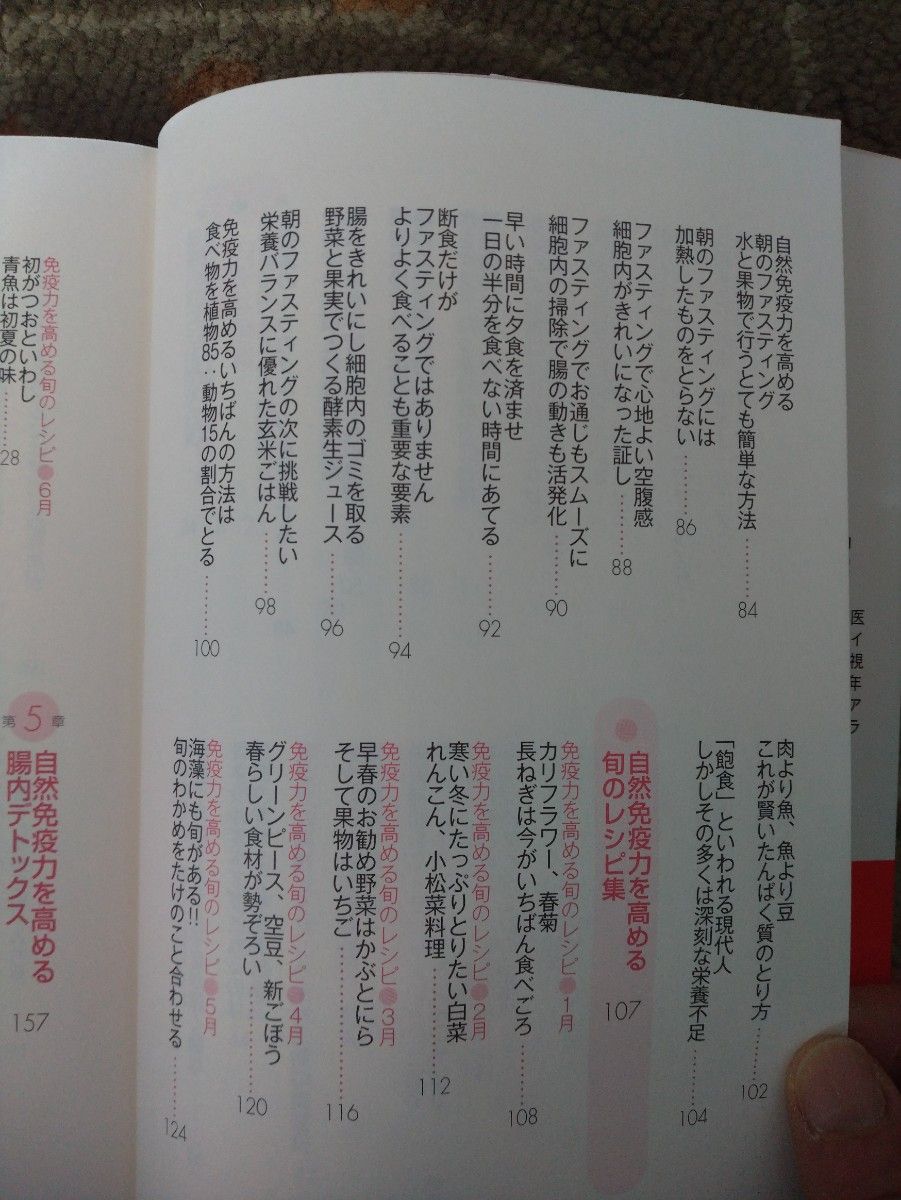 自然免疫力を高める
朝のファスティング
水と果物で行うとても簡単な方法………84
朝のファスティングには
加熱したものをとらない………86
ファスティングで心地よい空腹感
細胞内がきれいになった証し………88
ファスティングでお通じもスムーズに
細胞内の掃除で腸の動きも活発化………90
早い時間に夕食を済ませ
一日の半分を食べない時間にあてる………92
断食だけが
ファスティングではありません
よりよく食べることも重要な要素………94
腸をきれいにし細胞内のゴミを取る
野菜と果実でつくる酵素生ジュース………96
朝のファスティングの次に挑戦したい
栄養バランスに優れた玄米ごはん………98
免疫力を高めるいちばんの方法は
食べ物を植物85：動物15の割合でとる………100
肉より魚、魚より豆
これが賢いたんぱく質のとり方………102
「飽食」といわれる現代人
しかしその多くは深刻な栄養不足………104
自然免疫力を高める
旬のレシピ集
107
免疫力を高める旬のレシピ●1月
カリフラワー、春菊
長ねぎは今がいちばん食べごろ………108
免疫力を高める旬のレシピ●2月
寒い冬にたっぷりとりたい白菜
れんこん、小松菜料理………112
免疫力を高める旬のレシピ●3月
早春のお勧め野菜はかぶとにら
そして果物はいちご………116
免疫力を高める旬のレシピ●4月
グリーンピース、空豆、新ごぼう
春らしい食材が勢ぞろい………120
免疫力を高める旬のレシピ●5月
海藻にも旬がある!!
旬のわかめをたけのこと合わせる………124
免疫力を高める旬のレシピ●6月
初がつおといわし
青魚は初夏の味………28
第5章
自然免疫力を高める
腸内デトックス
157
医
イ
視
年
ア
ラ